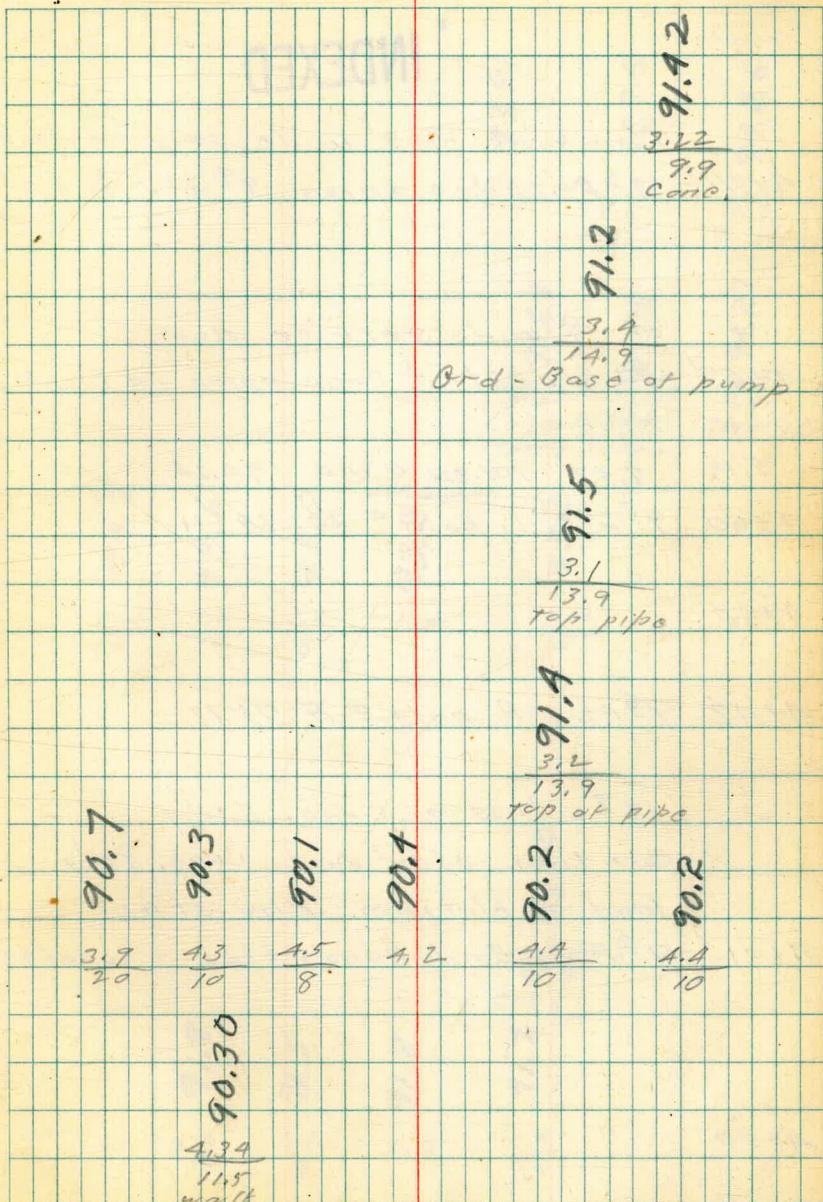 91.42
3.22
9.9
Conc.
91.2
3.4
14.9
Grd - Base of pump
91.5
3.1
13.9
Top pipe
91.4
3.2
13.9
Top of pipe
90.7 90.3 90.1 90.4 90.2 90.2
3.9 4.3 4.5 4.2 4.4 4.4
20 10 8 10 10
90.30
4.34
11.5
walk